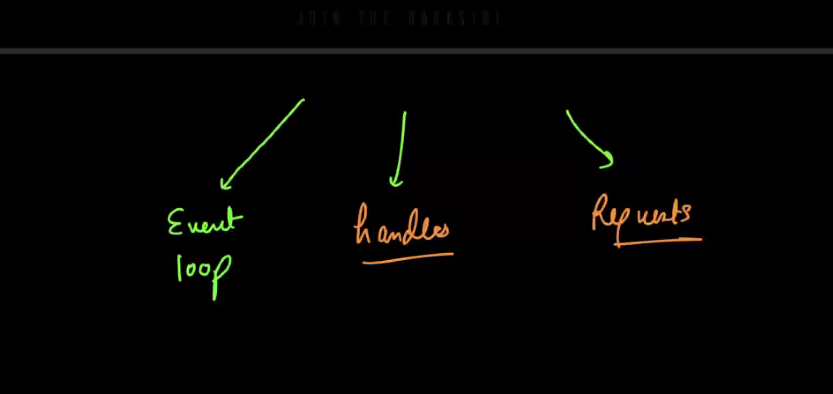 JOIN THE DARKSIDE
Event
loop
handles
Requests